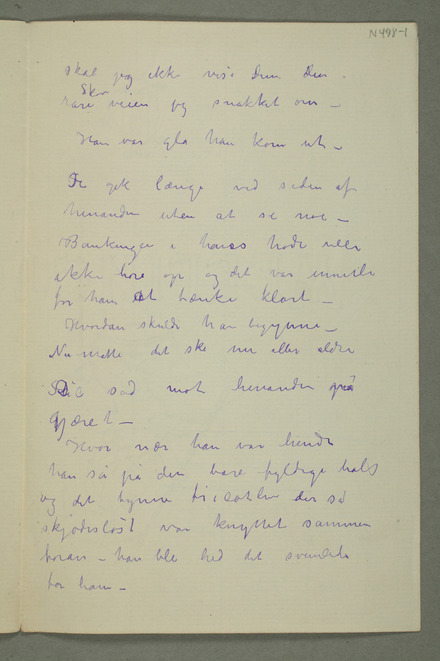 N 498-1
skal jeg ikke vise Dem den
Skov
rare veien jeg snakket om –
Han var gla han kom ut –
De gik længe ved siden af
hinanden uten at se noe –
Bankingen i hans hode ville
ikke høre op og det var umulig
for ham at tænke klart –
Hvordan skulde han begynne –
Nu måtte det ske nu eller aldri
De sad mot hinanden på
gjæret –
Hvor nær han var hende
han så på den bare fyldige hals
og det tynne der så
skjødesløst var knyttet sammen
foran – han ble hed det svimlet
for ham –